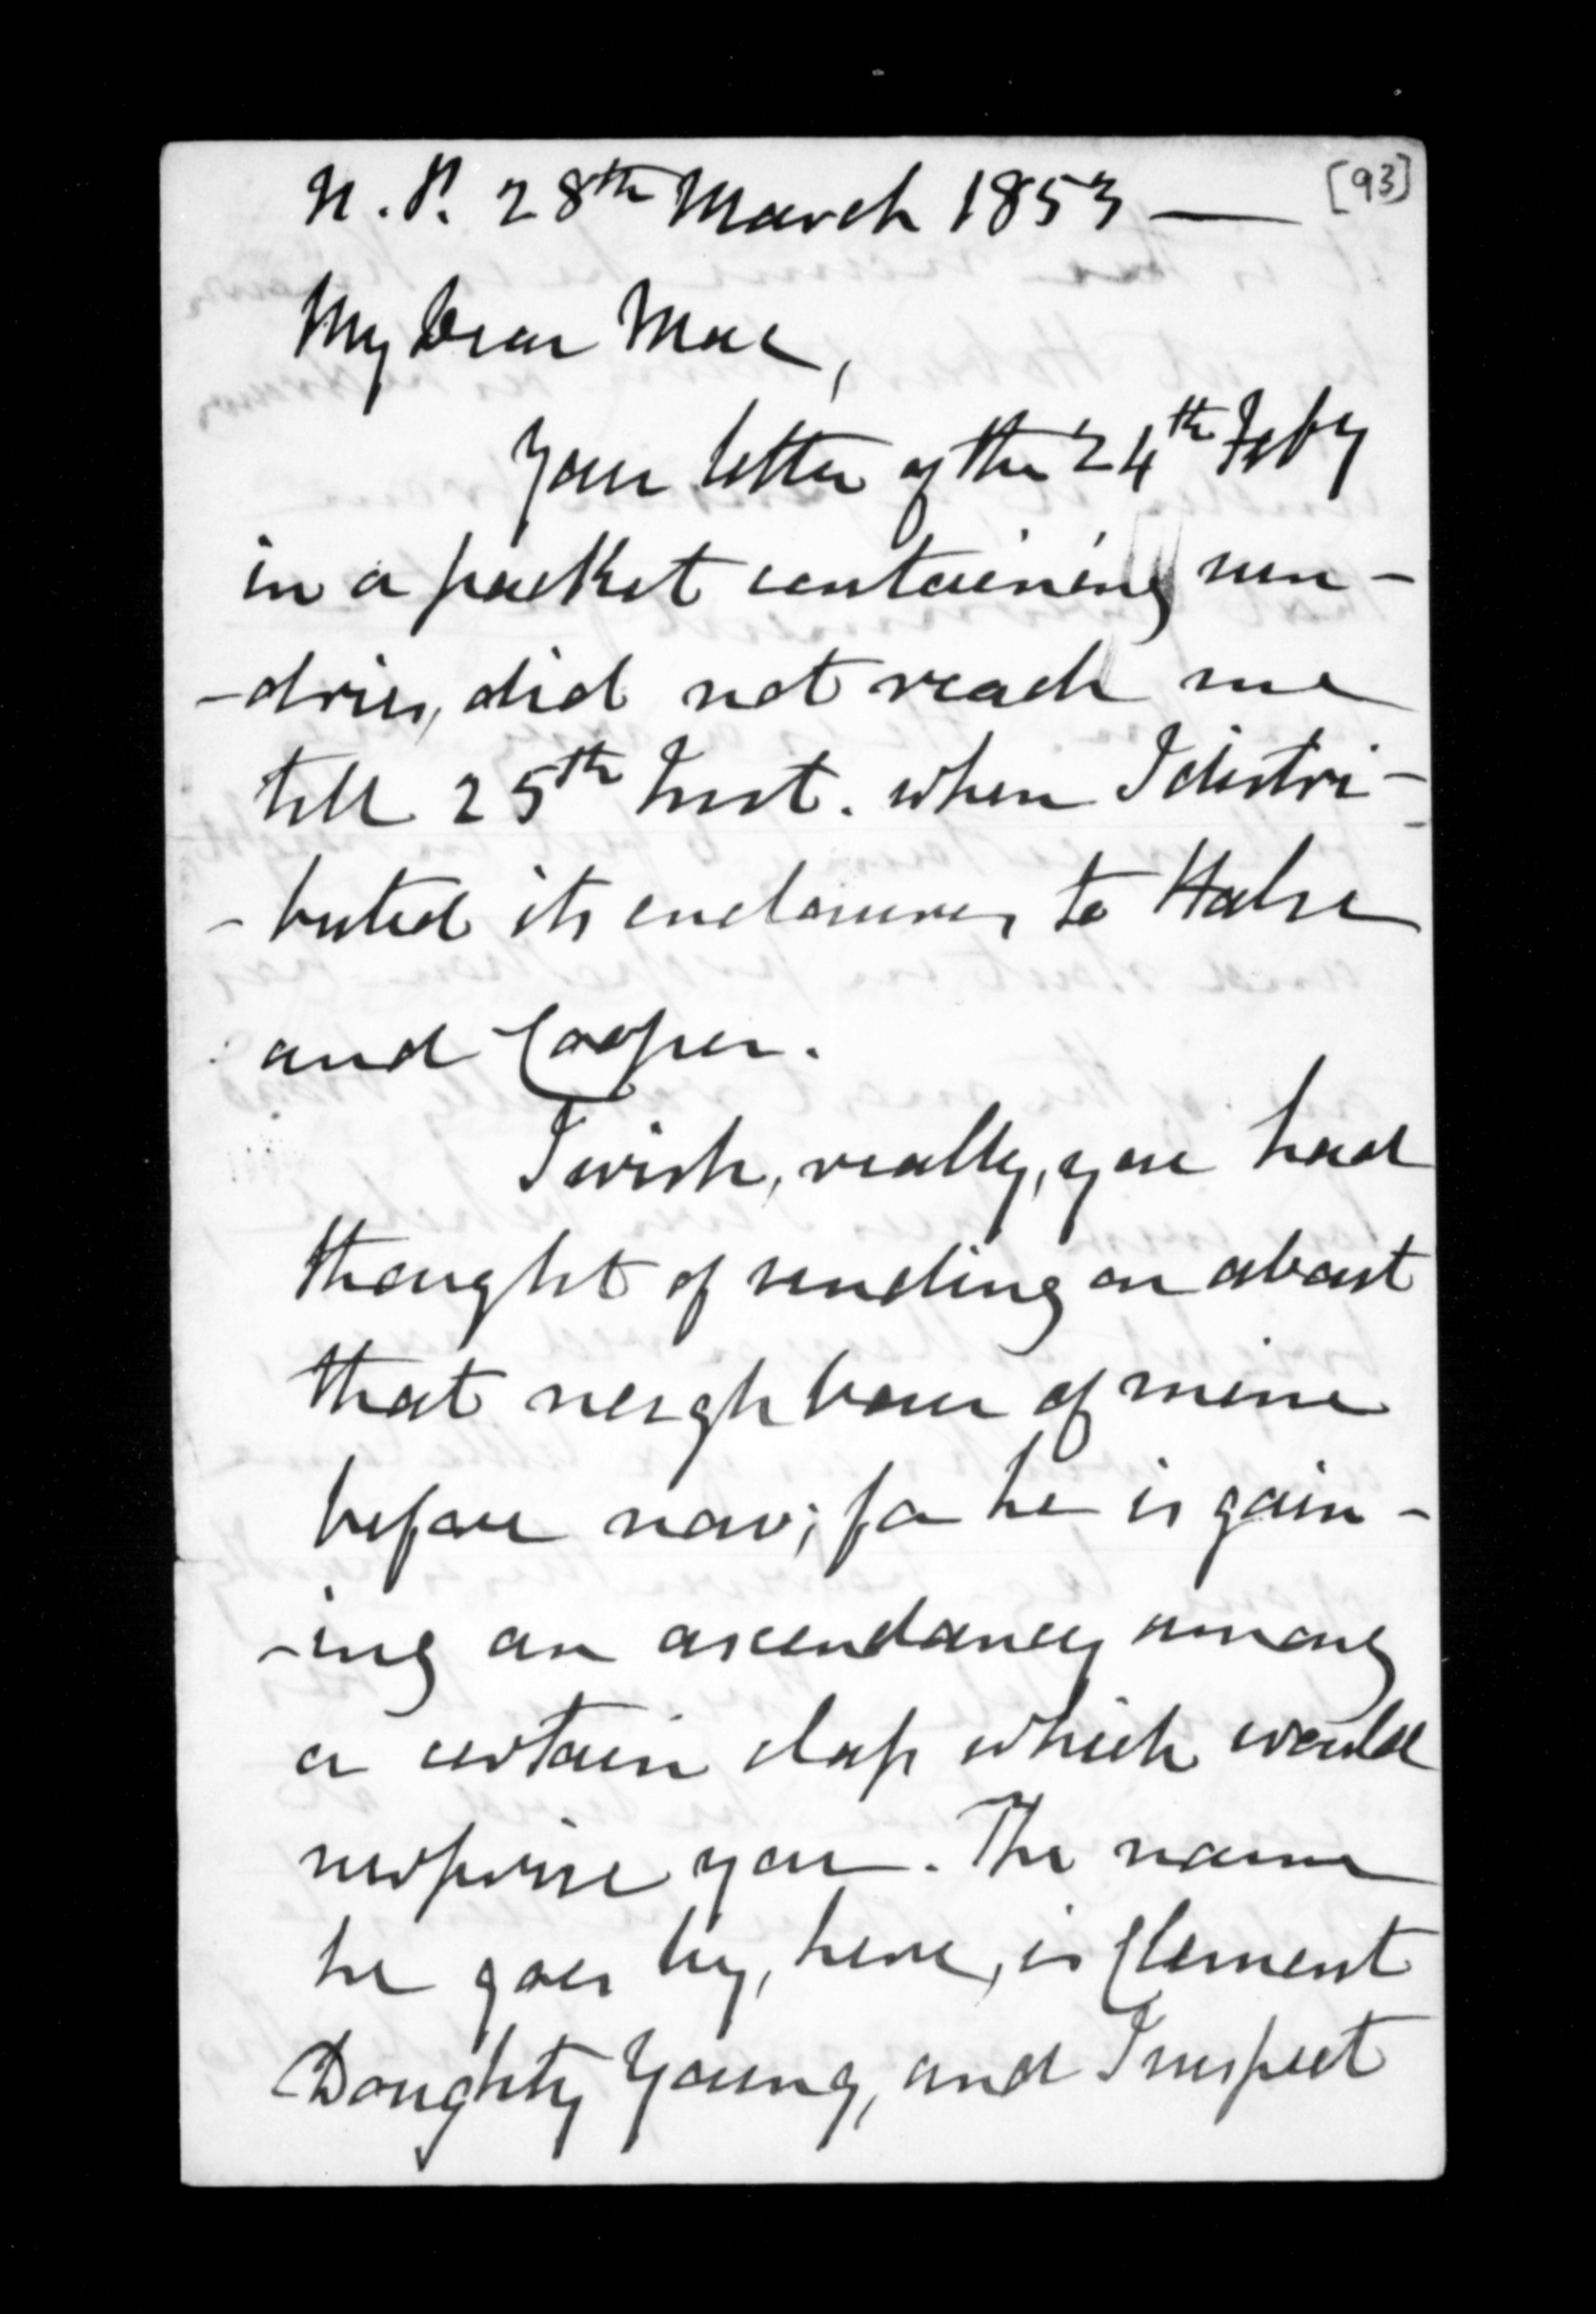 [93]
N.P. 28th March 1853 —
My Dear Mac,
Your letter of the 24th Feby
in a packet containing sun-
-dries, did not reach me
till 25th Inst. when I distri-
-buted its enclosures, to Halse
and Cooper.
I wish, really, you had
thought of sending on about
that neighbour of mine
before now; for he is gain-
-ing an ascendancy among
a certain class which would
surprise you. The name
he goes by, here, is Clement
Doughty Young, and I suspect